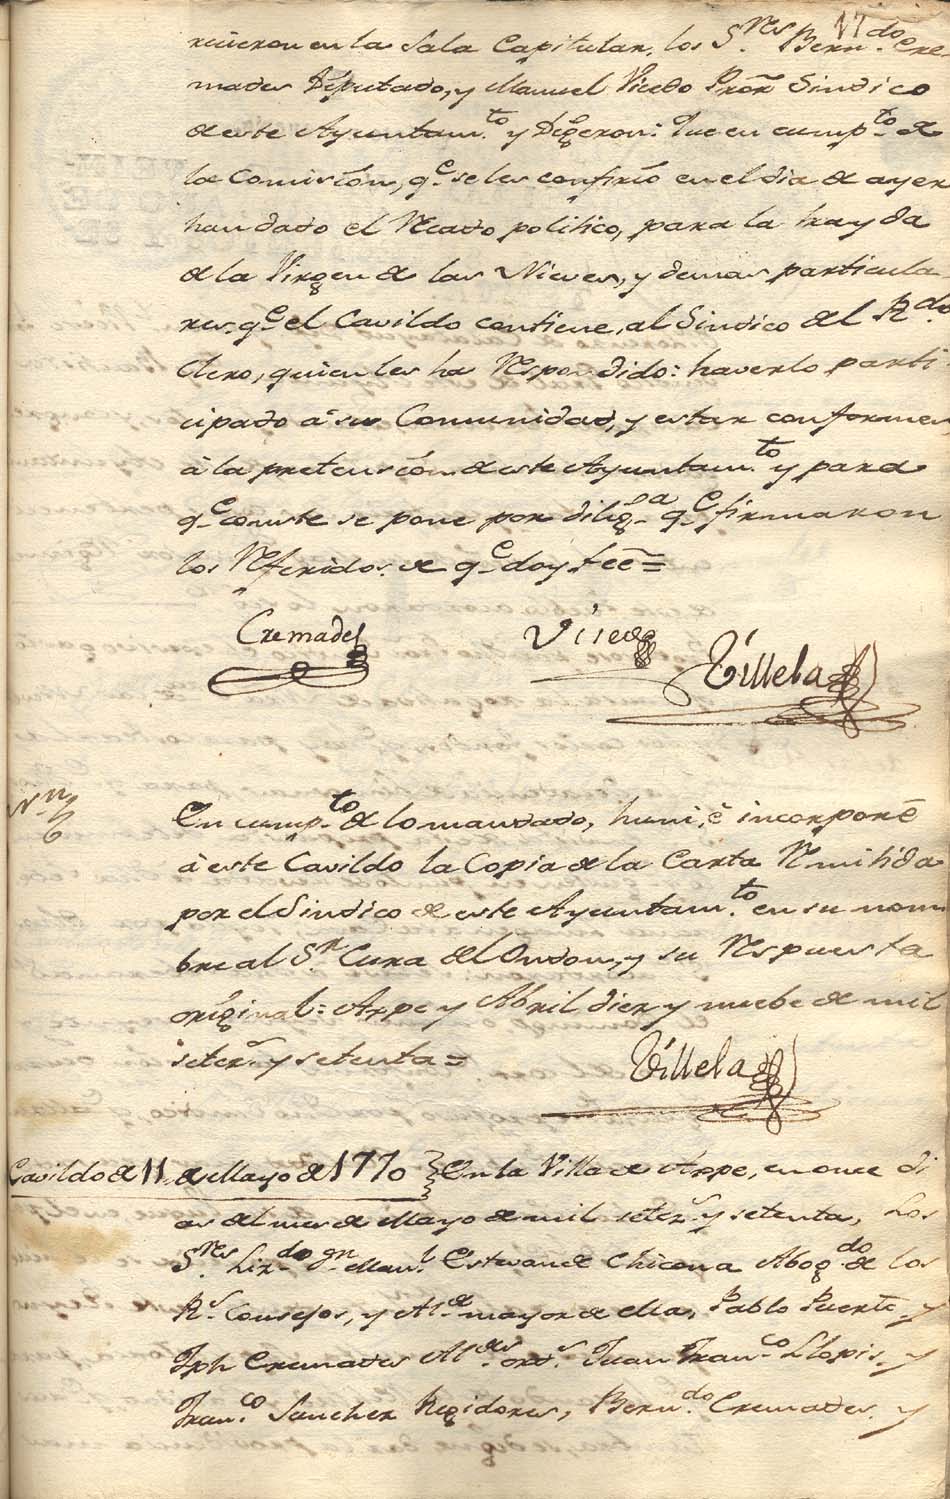 17
rieron en la Sala Capitular, los S.res Bern.do Cre-
mades Diputado, y Manuel Vicedo Pror Sindico
de este Ayuntam.to y Digeron: Que en cump.to de
la Comision, q.e seles confirio en el dia de ayer
han dado el Recado politico, para la trayda
de la Virgen de las Nieves, y demas particula-
res, q.e el Cavildo contiene, al Sindico del R.do
Clero, quien les ha Respondido: haverlo parti-
cipado á su Comunidad, y estar conformes
á la pretension de este Ayuntam.to y para
q.e conste se pone por dilig.a q.e firmaron
los Referidos, de q.e doy feé =
Cremades
Vicedo
Villela
En cump.to de lo mandado, huni, é incorporé
á este Cavildo la Copia de la Carta Remitida
por el Sindico de este Ayuntam.to en su nom-
bre al S.r Cura del Ondon, y su Respuesta
original: Aspe y Abril diez y nuebe de mil
setez.s y setenta =
Villela
Cavildo de 11 de Mayo de 1770 } En la Villa de Aspe, en once di
as del mes de Mayo de mil setez.s y setenta, Los
S.res Liz.do Dn Man.l Estevan de Chicona Abog.do de los
R.s Consejos, y Al.de mayor de ella, Pablo Puerto, y
Jph Cremades Al.des ord.s Juan Fran.co Llopis, y
Fran.co Sanchez Regidores, Bern.do Cremades, y